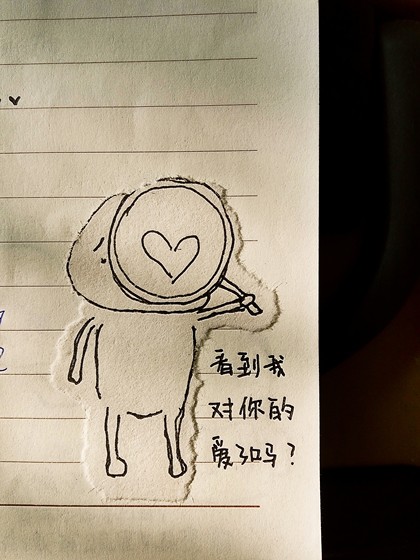 看到我
对你的
爱了吗？